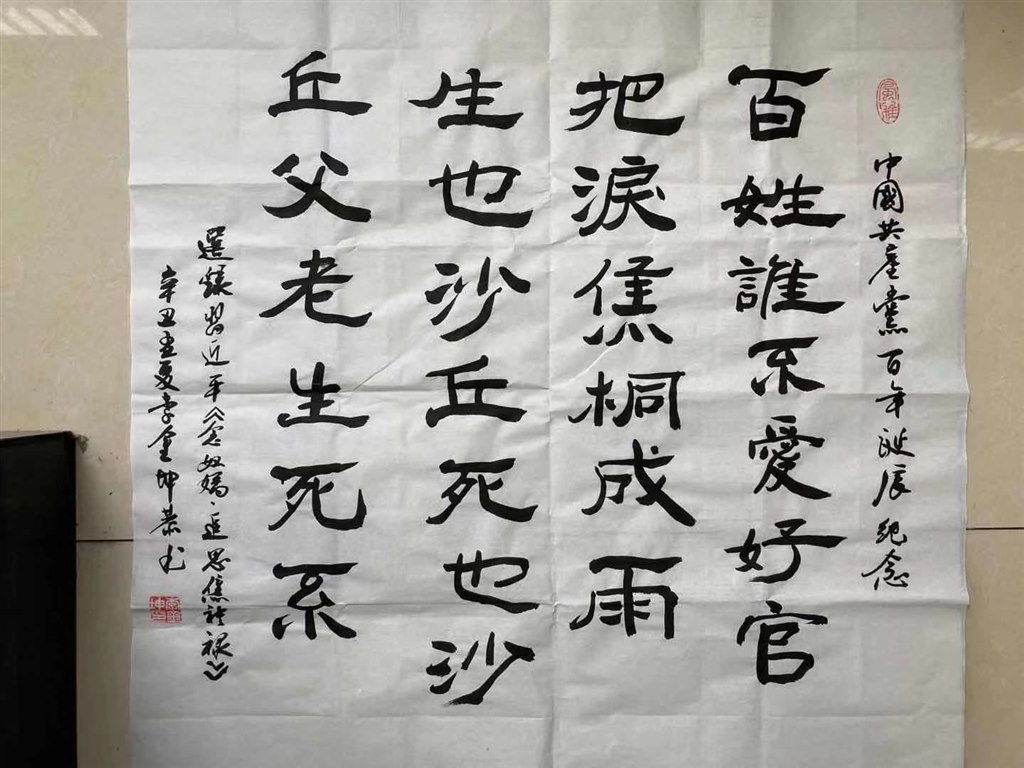 中國共產黨百年誕辰紀念
百姓誰不愛好官
把淚焦桐成雨
生也沙丘死也沙
丘父老生死系
選錄習近平《念奴嬌·追思焦裕祿》
辛丑孟夏李金坤恭书